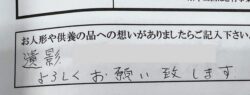 お人形や供養の品への想いがありましたらご記入下さい。
遺影
よろしくお願い致します